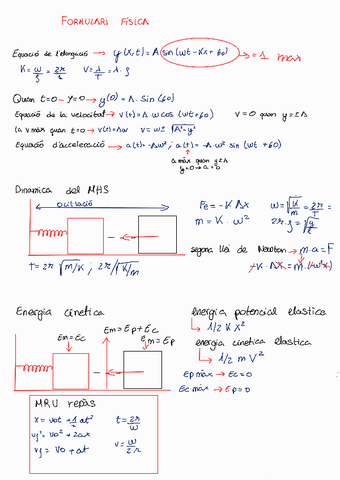 FORMULARI FÍSICA
Equació de l'elongació → y(x,t) = A sin(ωt - Kx + φo) = ±1 max
K = ω/v = 2π/λ V = λ/T = λ·f
Quan t=0 - y=0 → y(0) = A. sin(φo)
Equació de la velocitat → v(t) = A.ω cos(ωt+φo) v=0 quan y=±A
la v màx quan t=0 → v(t)=Aω v = ω√A²-y²
Equació d'acceleració → a(t) = -Aω²; a(t) = -A.ω² sin(ωt + φo)
a màx quan y=±A
y=0 → a=0
Dinàmica del MHS
oscil·lació
Fe = -K Δx ω = √K/m = 2π/T
m = K · ω² 2π·f = √g/l
segona llei de Newton → m·a = F
-K·Δx = m·(-ω²x)
T = 2π √m/K ; 2π/√K/m
Energia cinètica
energia potencial elàstica
→ 1/2 K x²
Em = Ec
Em = Ep + Ec
Em = Ep
energia cinètica elàstica
→ 1/2 m V²
Ep màx → Ec = 0
Ec màx → Ep = 0
MRU repàs
x = vot + 1/2 at² t = 2π/ω
vf² = vo² + 2ax
vf = vo + at v = ω/2π